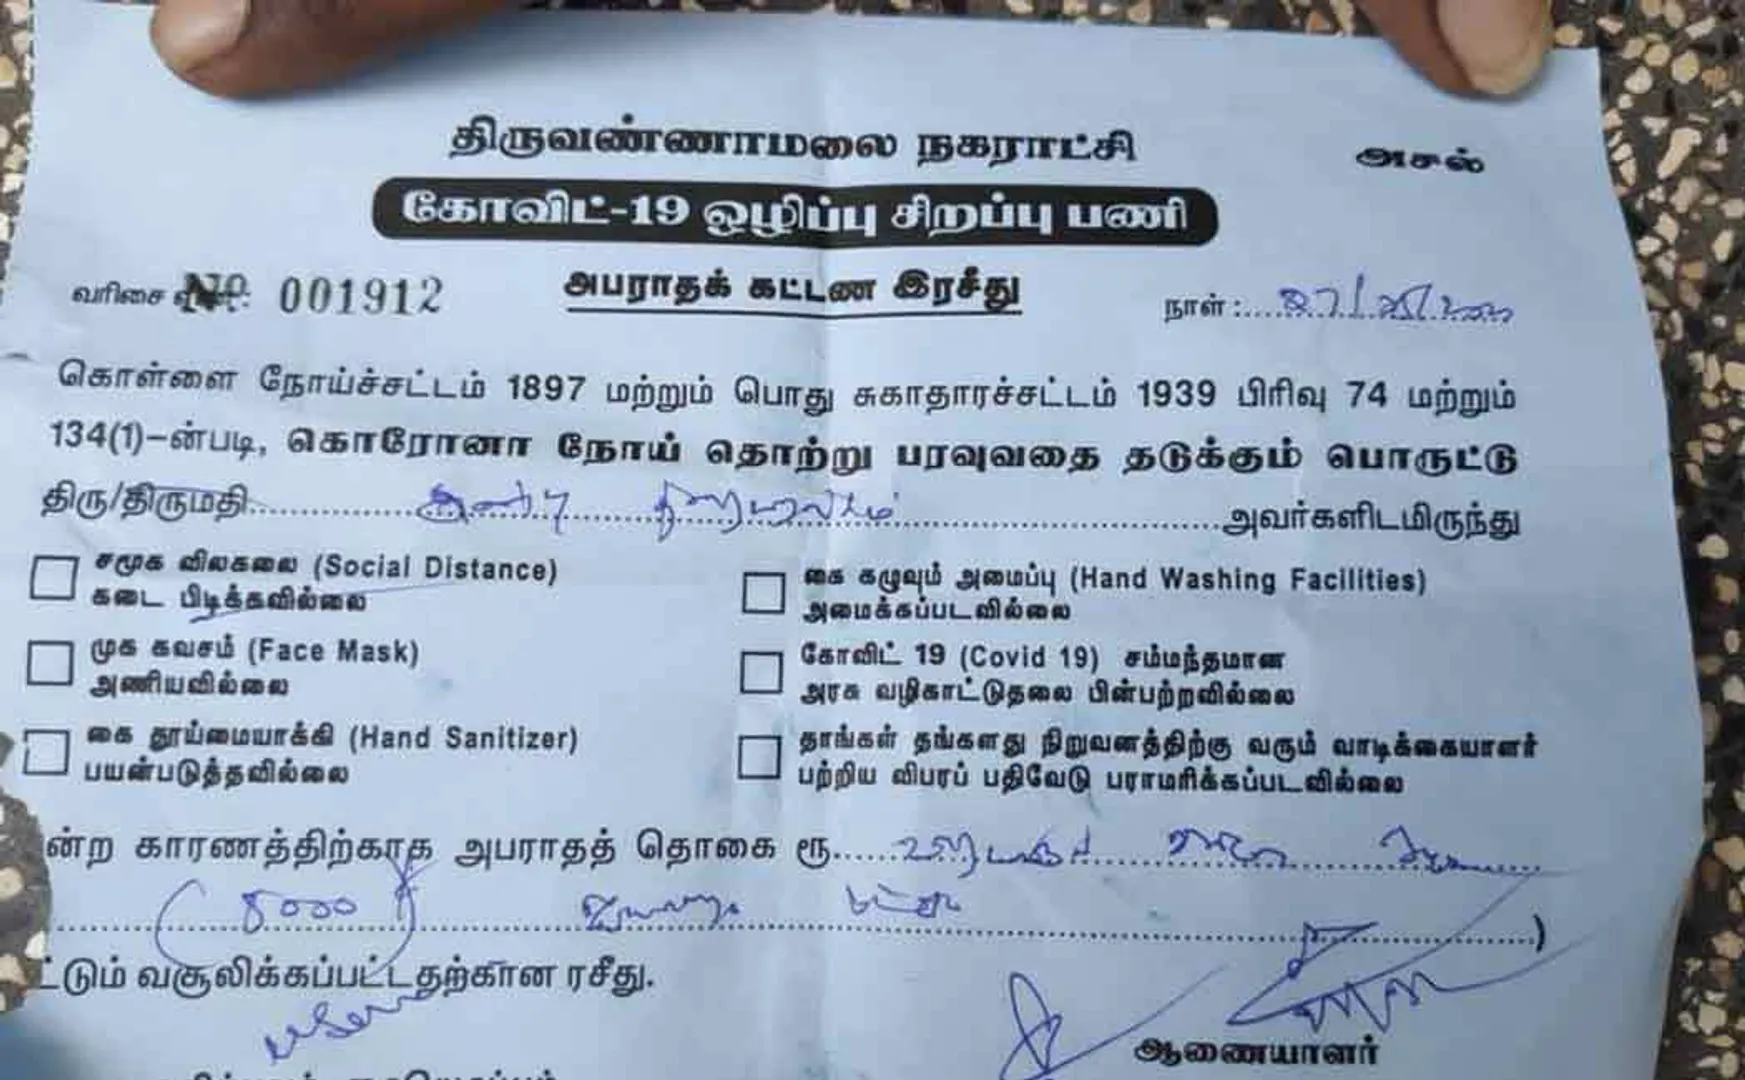 திருவண்ணாமலை நகராட்சி
அசல்
கோவிட்-19 ஒழிப்பு சிறப்பு பணி
வரிசை No. 001912
அபராதக் கட்டண இரசீது
நாள் :
கொள்ளை நோய்ச்சட்டம் 1897 மற்றும் பொது சுகாதாரச்சட்டம் 1939 பிரிவு 74 மற்றும்
134(1)-ன்படி, கொரோனா நோய் தொற்று பரவுவதை தடுக்கும் பொருட்டு
திரு/திருமதி அவர்களிடமிருந்து
சமூக விலகலை (Social Distance)
கடை பிடிக்கவில்லை
கை கழுவும் அமைப்பு (Hand Washing Facilities)
அமைக்கப்படவில்லை
முக கவசம் (Face Mask)
அணியவில்லை
கோவிட் 19 (Covid 19) சம்மந்தமான
அரசு வழிகாட்டுதலை பின்பற்றவில்லை
கை தூய்மையாக்கி (Hand Sanitizer)
பயன்படுத்தவில்லை
தாங்கள் தங்களது நிறுவனத்திற்கு வரும் வாடிக்கையாளர்
பற்றிய விபரப் பதிவேடு பராமரிக்கப்படவில்லை
ன்ற காரணத்திற்காக அபராதத் தொகை ரூ.
ட்டும் வசூலிக்கப்பட்டதற்கான ரசீது.
ஆணையாளர்